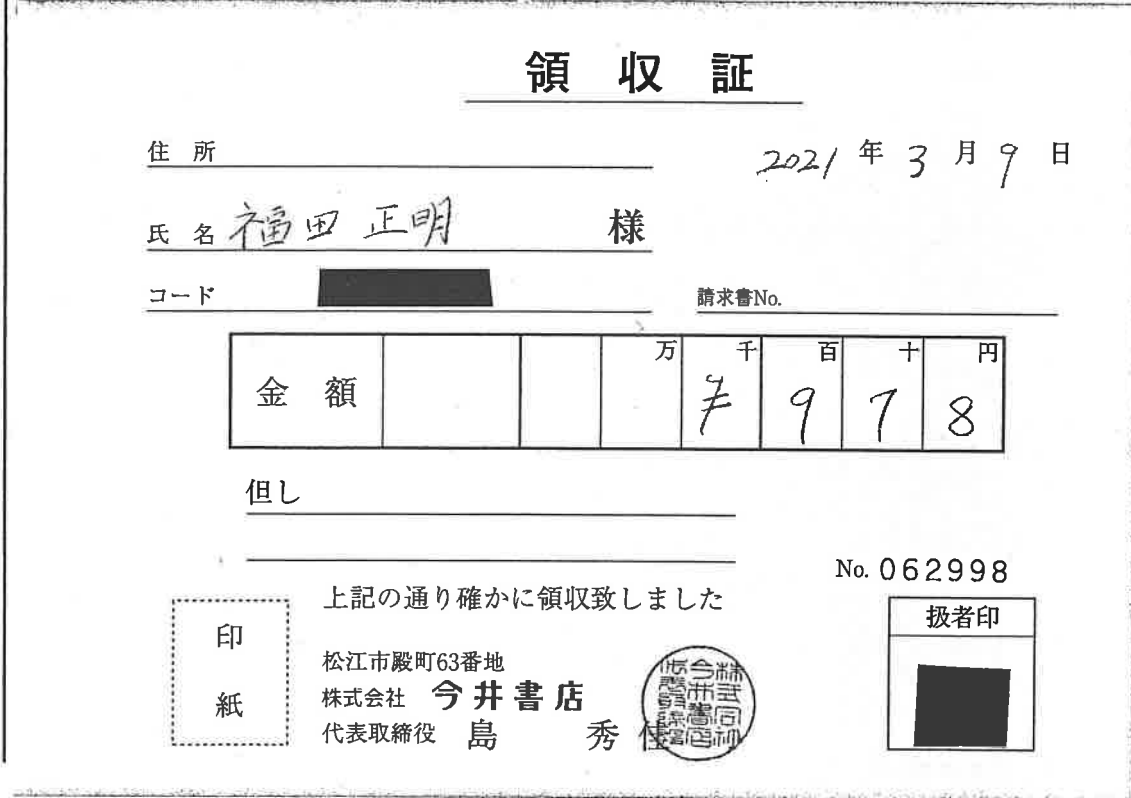 領収証
住所
2021年3月9日
氏名 福田 正明 様
コード
請求書No.
金額 万 千 百 十 円
¥ 9 7 8
但し
No. 062998
上記の通り確かに領収致しました
印紙
扱者印
松江市殿町63番地
株式会社 今井書店
代表取締役 島 秀佳